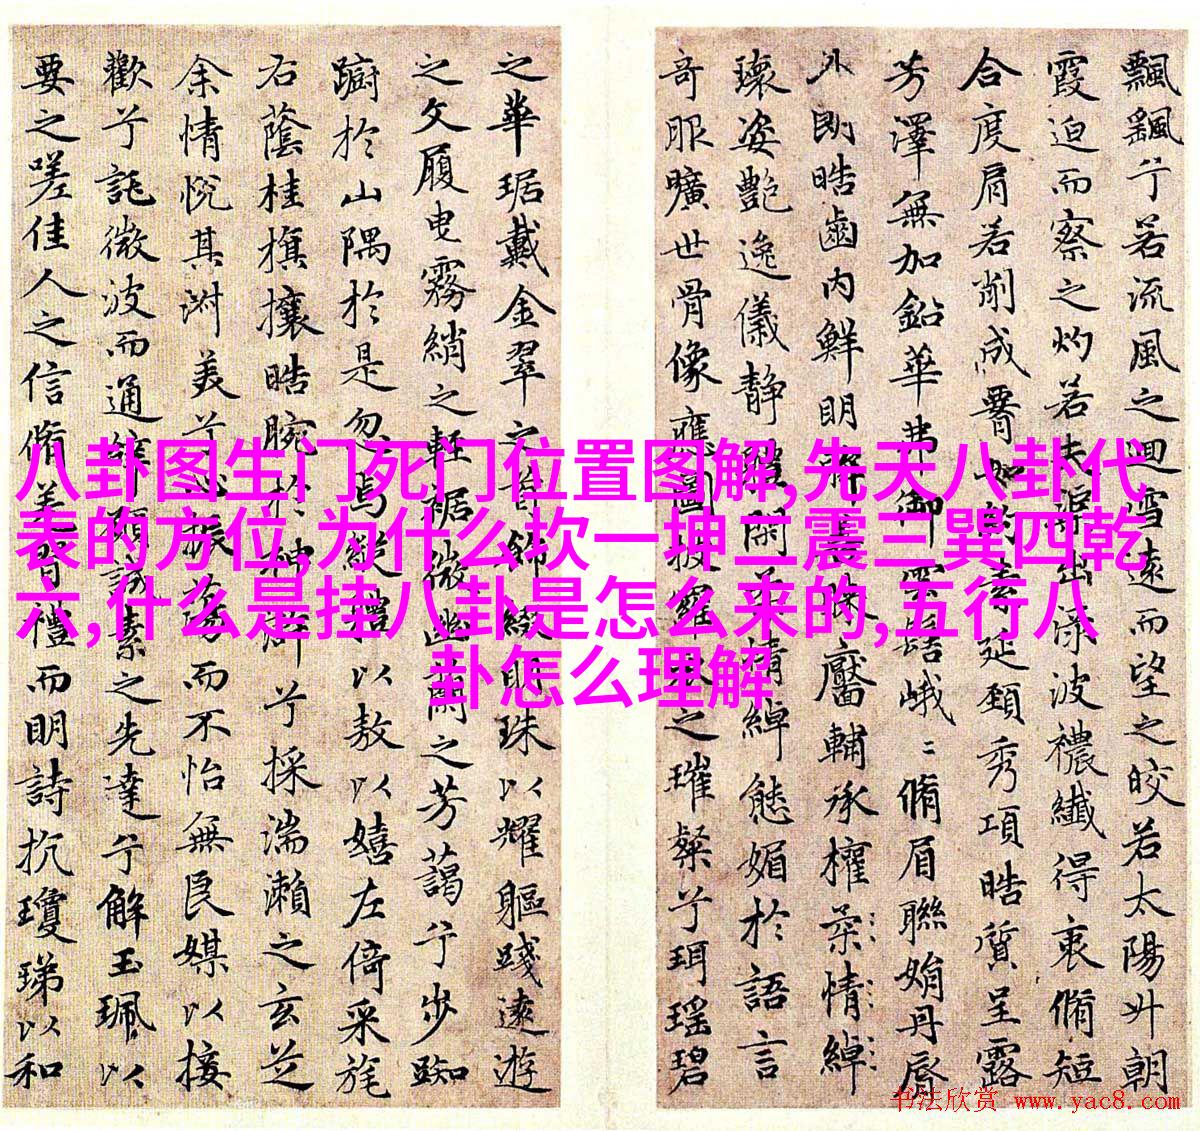 飄飖兮若流風之迴雪遠而望之皎若太陽升朝
霞迫而察之灼若夫蕖出渌波襛纖得衷脩短
合度肩若削成署如約素延頸秀項皓質呈露
芳澤無加鉛華弗御雲髻峨〻脩眉聯娟丹脣
外朗皓齒内鮮明眸善睞靨輔承權柔情綽
瓌姿艷逸儀靜體閑柔情綽態媚於語言
奇服曠世骨像應圖披羅衣之璀粲兮珥瑤碧
之華琚戴金翠之首飾綴明珠以耀軀踐遠遊
之文履曳霧綃之輕裾微幽蘭之芳藹兮步踟
躕於山隅於是忽焉縱體以敖以嬉左倚采旄
右蔭桂旗攘皓腕於神滸兮採湍瀨之玄芝
余情悅其淑美兮心振蕩而不怡無良媒以接
歡兮託微波而通辭願誠素之先達兮解玉珮以
要之嗟佳人之信脩羌習禮而明詩抗瓊珶以和
八卦图生门死门位置图解,先天八卦代
表的方位,为什么坎一抻二震三巽四乾
六,什么是挂八卦是怎么来的,五行八
卦怎么理解
书法欣赏 www.yac8.com